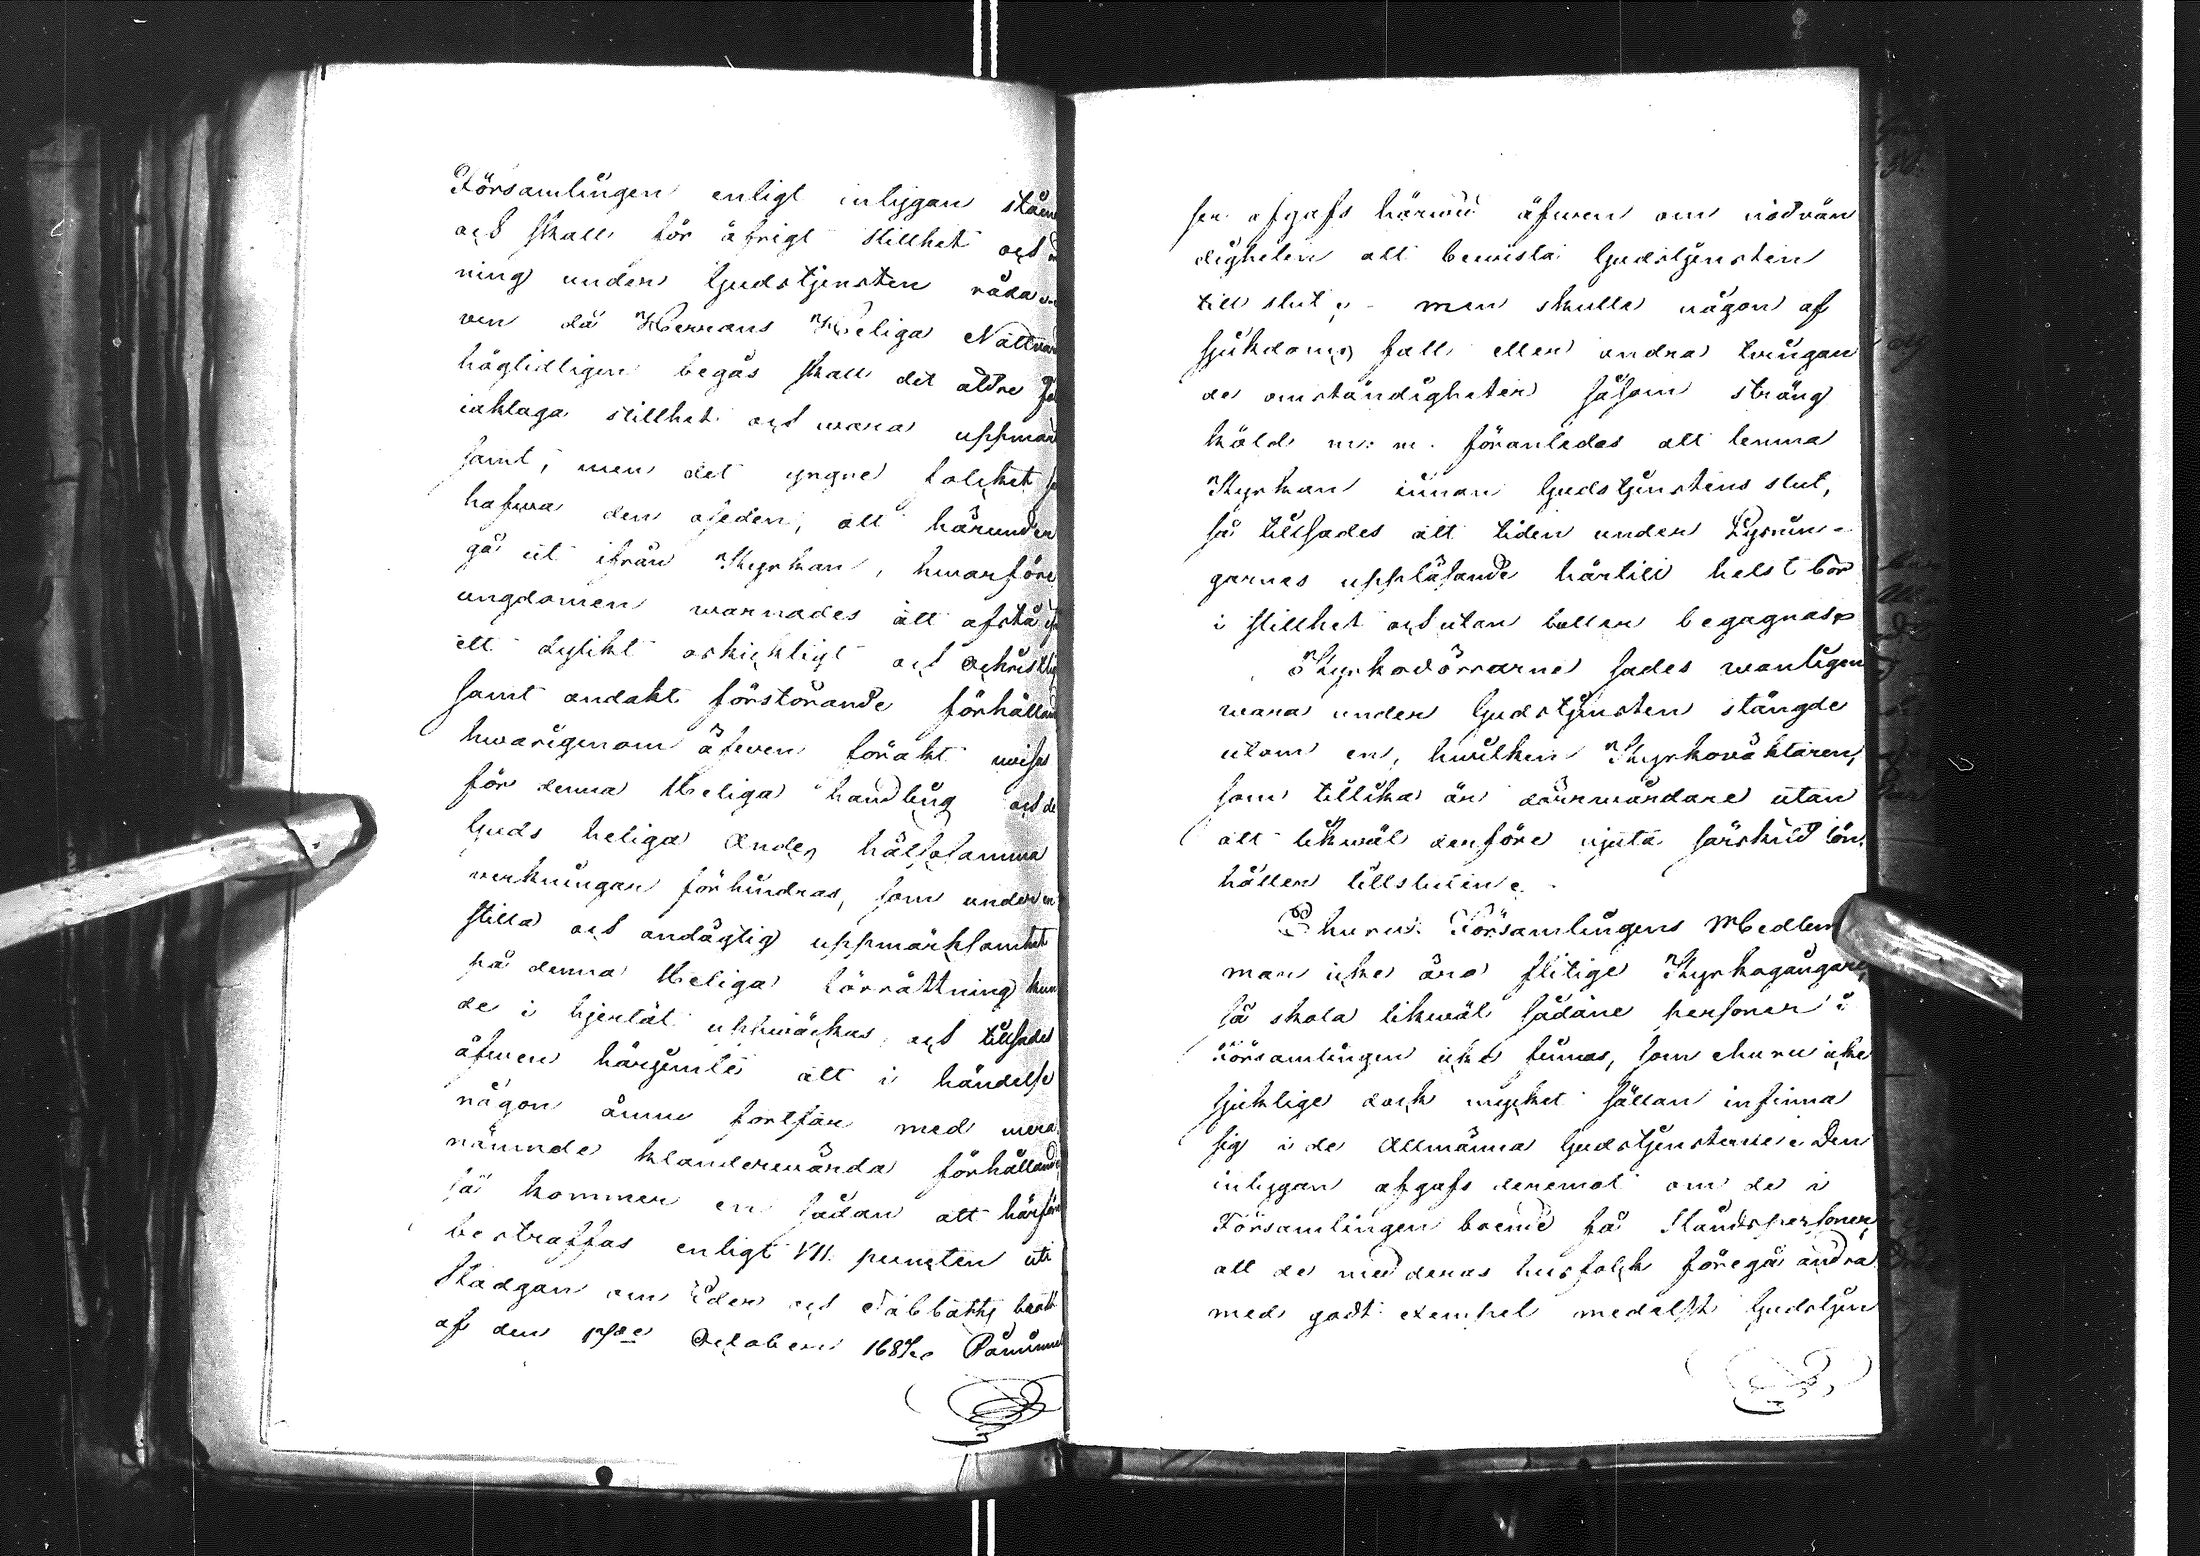 Församlingen enligt inlyggan
och skall för öfrigt stillhet och
ning under Gudstjensten råda
ven då Herrans Heliga Nattvar
högtidligen begås skall det äldre
iakttaga stillhet och wara uppmärk
samt; men det yngre folcket
hafwa den oseden, att härunder
gå ut ifrån Kyrkan, hwarföre
ungdomen warnades att afstå
ett dylikt oskickligt och ochristlig
samt andakt förstörande förhålland
hwarigenom äfwen förakt wisas
för denna Heliga handling och de
Guds heliga Andes hälsosamma
werkningar förhindras, som under en
stilla och andägtig uppmärksamhet
på denna Heliga förrättning kun
de i hjertat uppwäckas, och tillsades
äfwen härjemte att i händelse
någon ännu fortfar med
nämnde klanderwärda förhållande
så kommer en sådan att härföre
bestraffas enligt VII. puncten uti
Stadgan om Eder och Sabbaths brott
af den 17de October 1687. Påminnel
ser afgafs härwid äfwen om nödvän
digheten att bewista Gudstjensten
till slut; - men skulle någon af
sjukdoms fall eller andra twingan
de omständigheter såsom sträng
köld m: m. föranledas att lemna
Kyrkan innan Gudstjenstens slut,
så tillsades att tiden under Lysnin-
garnes uppläsande härtill helst bör
i stillhet och utan buller begagnas.
Kyrkodörrarne sades wanligen
wara under Gudstjensten stängde
utom en, hwilken Kyrkowäktaren,
som tillika är dörrwärdare utan
att likwäl derföre njuta särskild lön,
håller tillsluten.
Ehuru Församlingens Medlem
mar icke äro flitige Kyrkogångare,
så skola likwäl sådane personer i
Församlingen icke finnas, som ehuru icke
sjuklige dock mycket sällan infinna
sig i de Allmänna Gudstjensterne. Den
inlyggan afgafs deremot om de i
Församlingen boende få Ståndspersoner,
att de med deras husfolck föregå andra
med godt exempel medelst Gudstjen